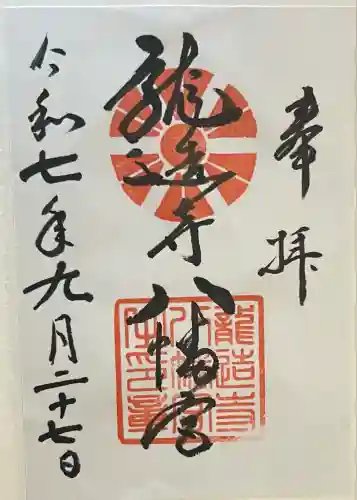 奉拝
龍造寺八幡宮
令和七年九月二十七日
龍造寺
八幡宮